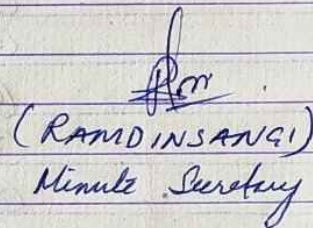 (RAMDINSANGI)
Minute Secretary